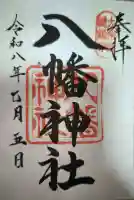 奉拝
八幡神社
令和八年乙月五日